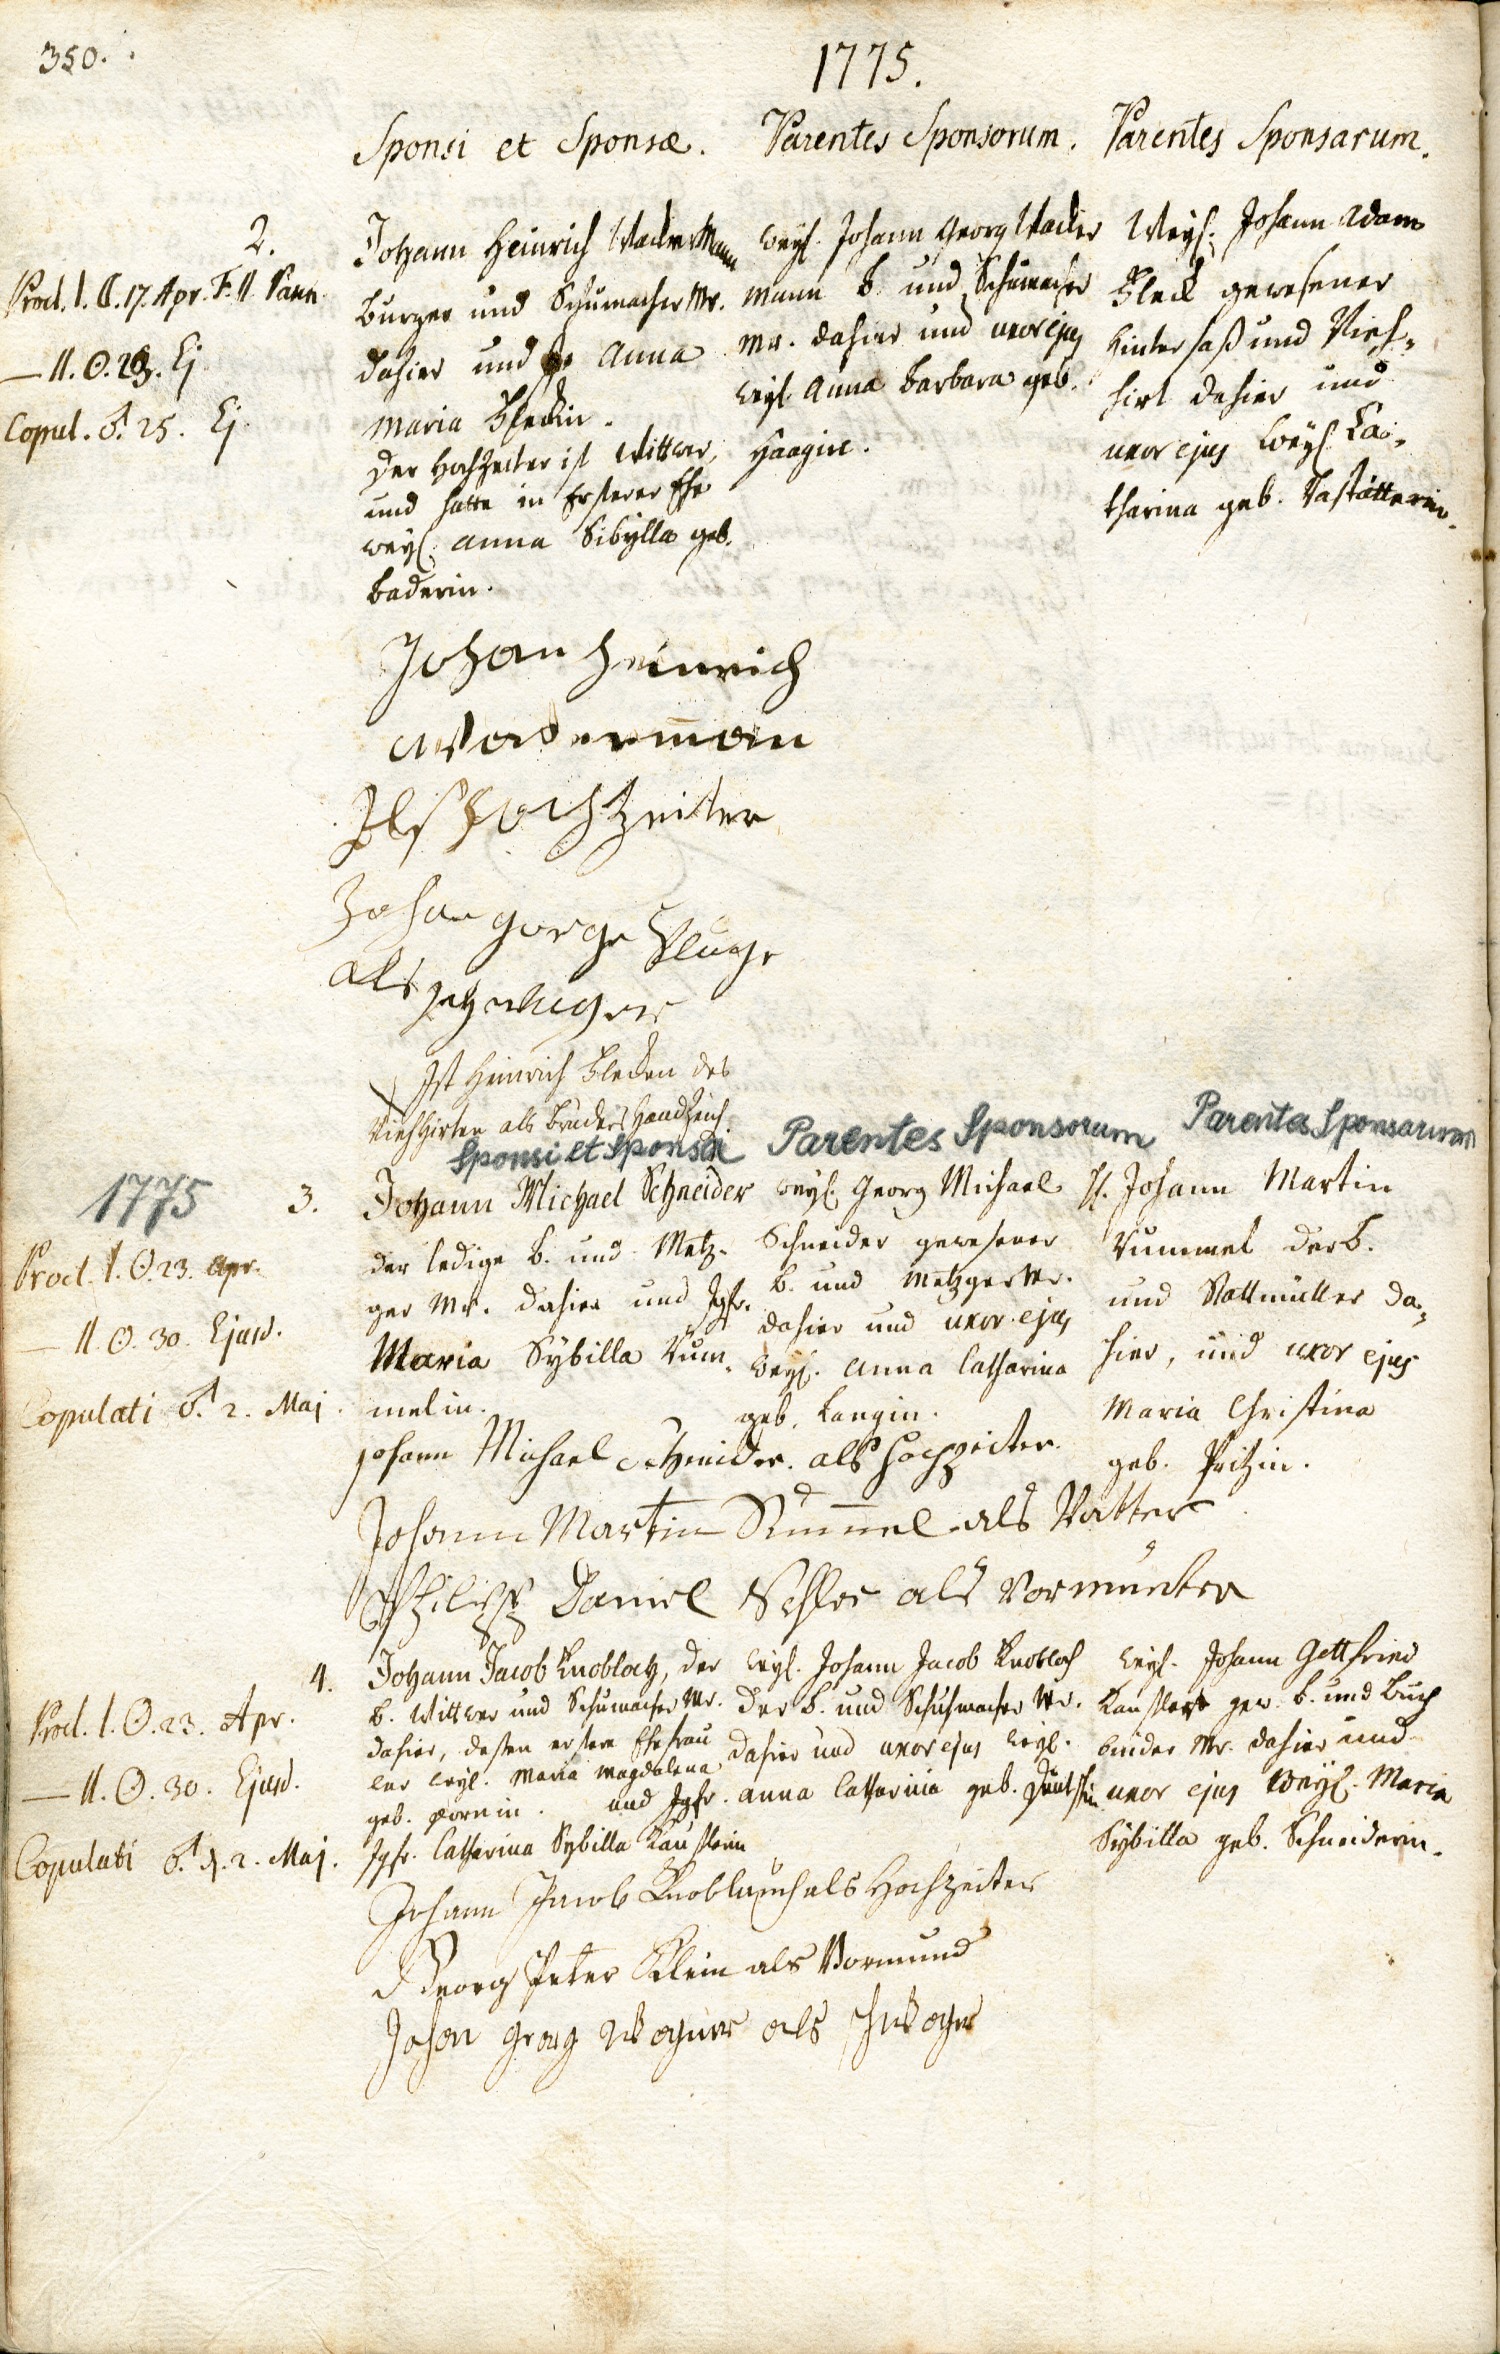 350.
1775.
Sponsi et Sponsæ.
Parentes Sponsorum.
Parentes Sponsarum.
2.
Procl. I. 17. Apr. F. II.
— II. ⊙. 23. Ej.
Copul. ♂. 25. Ej.
Johann Heinrich Wackermann
burger und Schumacher Mr.
dahier und Anna
Maria Fleckin.
der Hochzeiter ist Wittwer,
und hatte in Ersterer Ehe
weyl. Anna Sibylla geb.
Baderin.
weyl. Johann Georg Wacker
mann b. und Schumacher
Mr. dahier und uxor ejus
weyl. Anna Barbara geb.
Haagin.
Weyl. Johann Adam
Fleck gewesener
hintersaß und Vieh-
hirt dahier und
uxor ejus weyl. Ca-
tharina geb. Rastätterin.
Johan Heinrich
Wackerman
Als Hochzeiter
Johan Gorge
als
Ist Heinrich Flecken des
Viehhirten als Bruders Handzeich.
Sponsi et Sponsæ
Parentes Sponsorum
Parentes Sponsarum
1775
3.
Procl. I. ⊙. 23. Apr.
— II. ⊙. 30. Ejusd.
Copulati ♂. 2. Maj.
Johann Michael Schneider
der ledige b. und Metz-
ger Mr. dahier und Jgfr.
Maria Sybilla Rum-
melin.
weyl. Georg Michael
Schneider gewesener
b. und Metzger Mr.
dahier und uxor ejus
weyl. Anna Catharina
geb. Langin.
H. Johann Martin
Rummel der b.
und Stattmüller da-
hier, und uxor ejus
Maria Christina
geb. Pritzin.
Johann Michael Schneider. als Hochzeiter.
Johann Martin Rum̄el als Vatter
Philipp Daniel als Vormunder
4.
Procl. I. ⊙. 23. Apr.
— II. ⊙. 30. Ejusd.
Copulati ♂. d. 2. Maj.
Johann Jacob Knobloch, der
b. Wittwer und Schumacher Mr.
dahier, dessen erstere Ehefrau
war weyl. Maria Magdalena
geb. Dornin. und Jgfr.
Jgfr. Catharina Sybilla
weyl. Johann Jacob Knobloch
der b. und Schuhmacher Mr.
dahier und uxor ejus weyl.
Anna Catharina geb.
weyl. Johann Gottfried
gew. b. und Buch
binder Mr. dahier und
uxor ejus weyl. Maria
Sybilla geb. Schneiderin.
Johann Jacob Knoblauch als Hochzeiter
Georg Peter Klein als Vormund
Johan Georg Wagner als Schwager